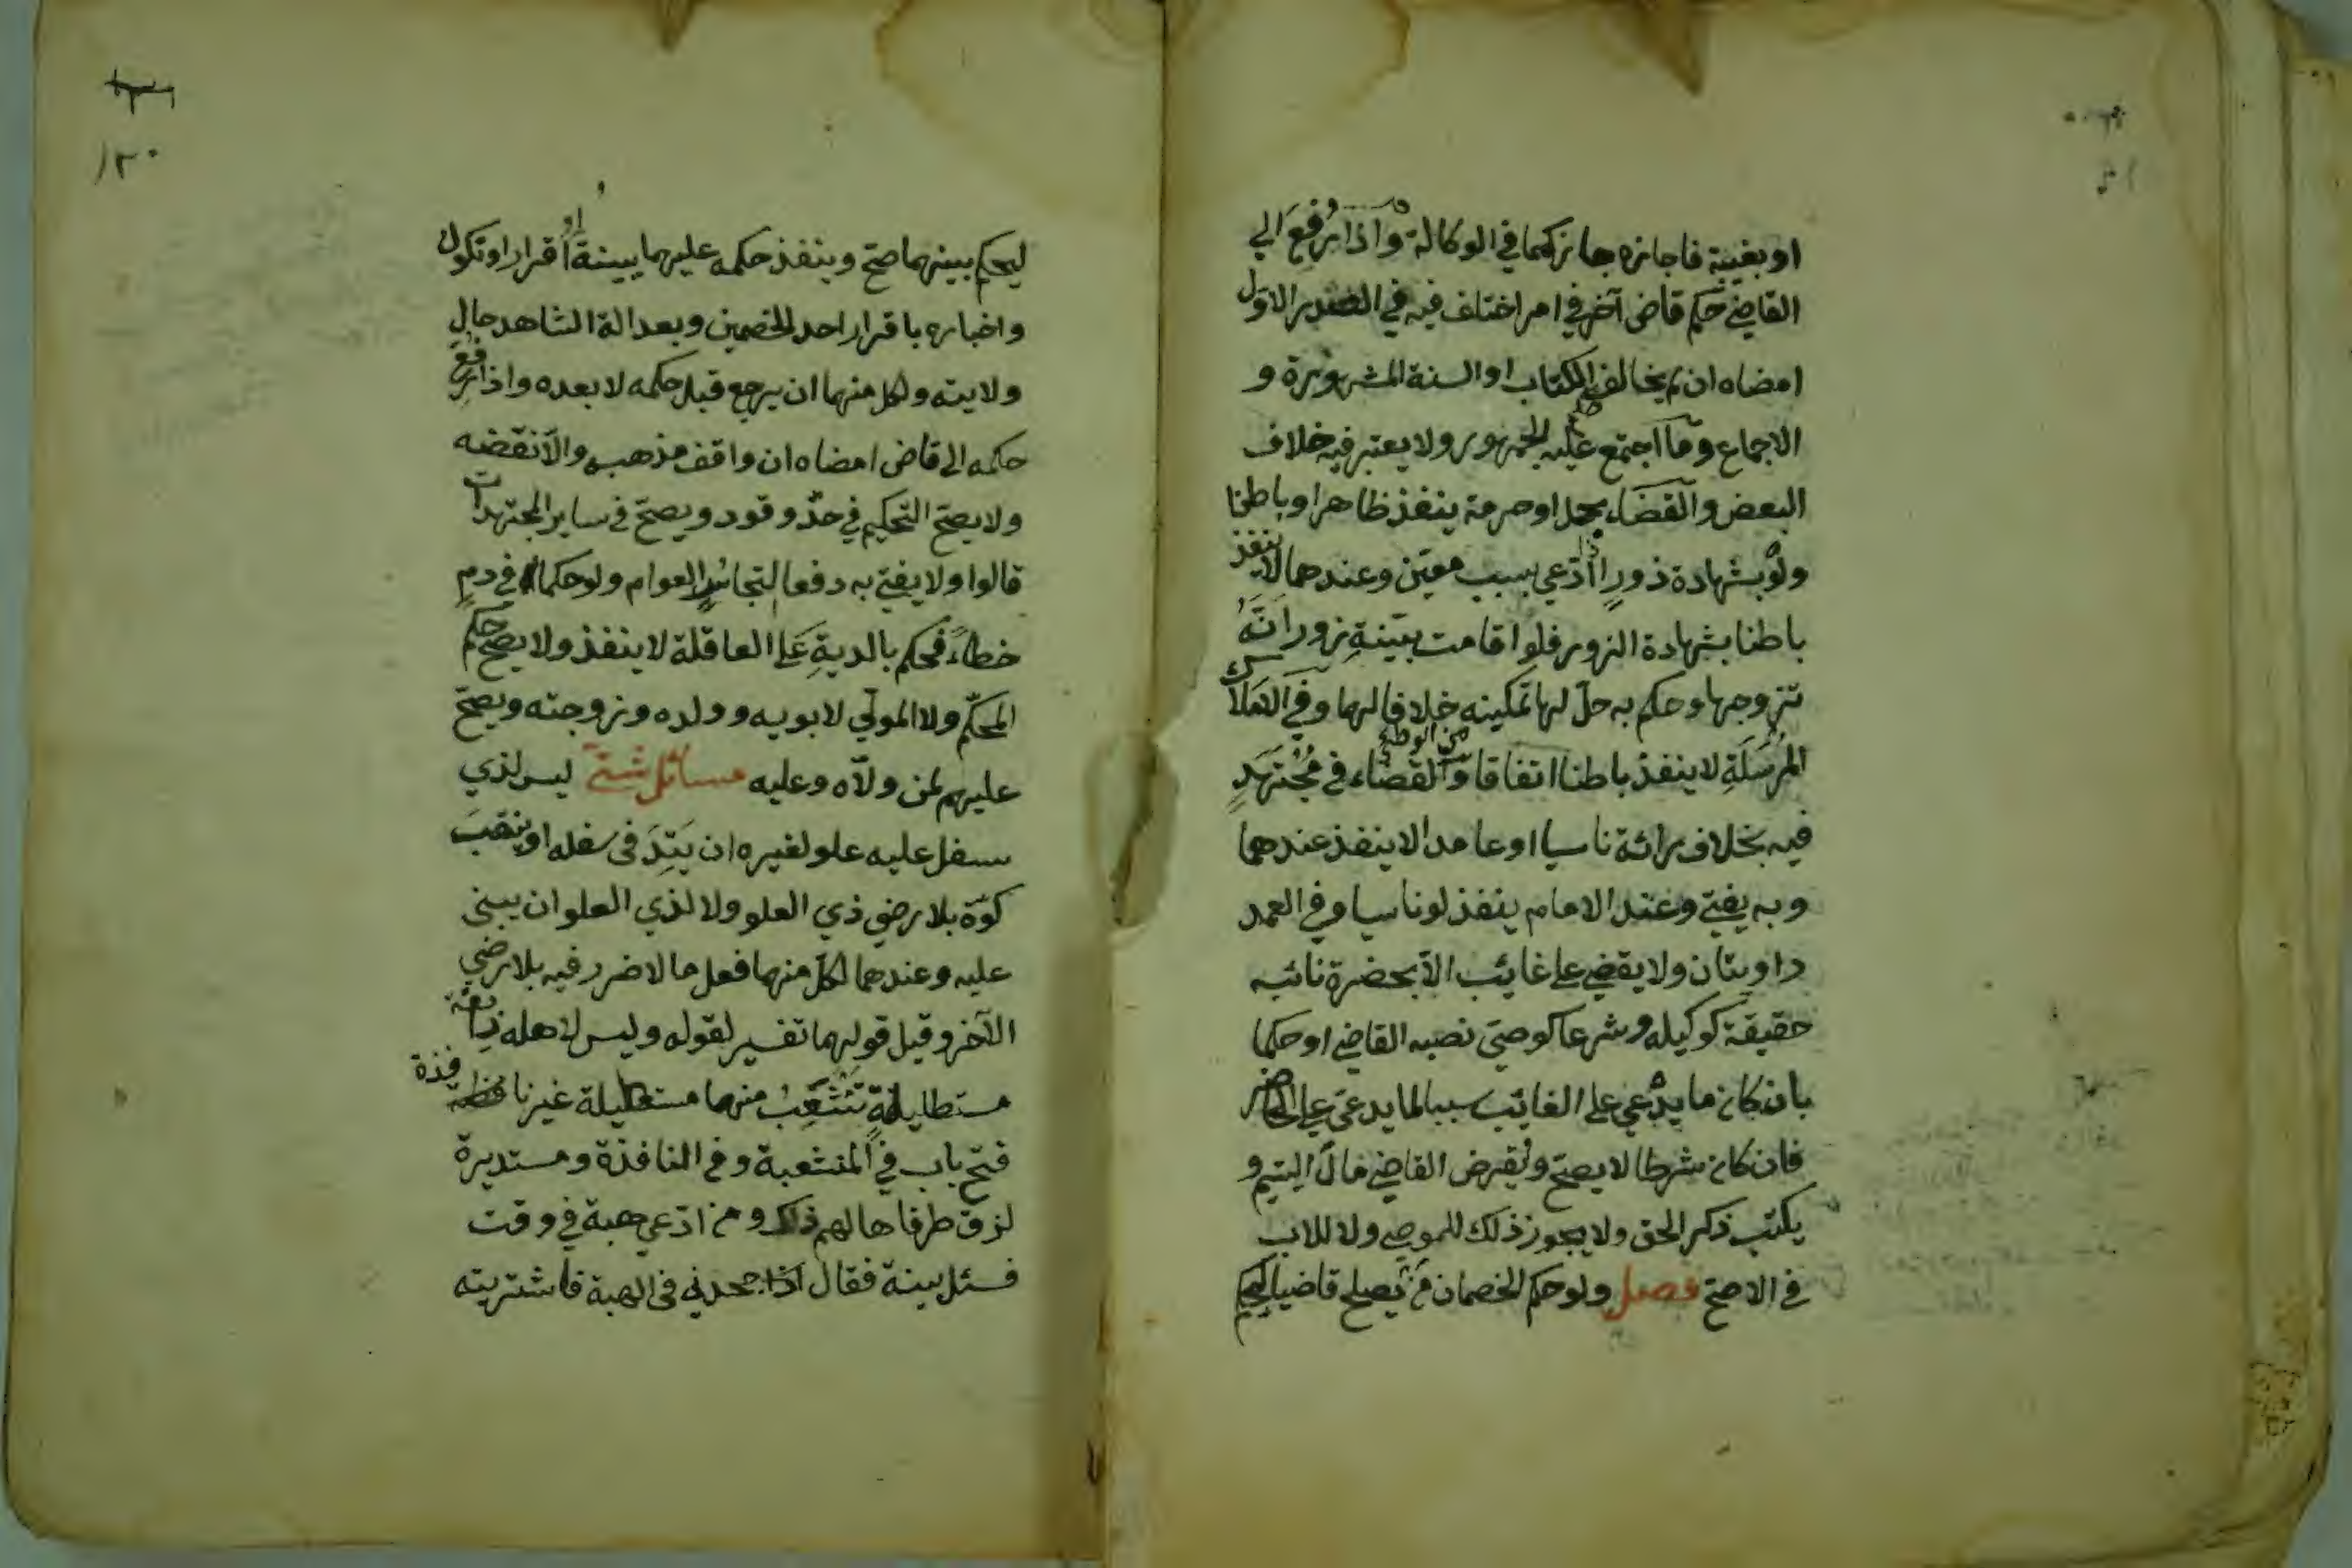 او بغيبة فاجازه جاز كما في الوكالة واذا رُفِعَ الي
القاضي حكم قاض آخر في امر اختلف فيه في الصدر الاوّل
امضاه ان لم يخالف الكتاب او السنة المشهورة و
الاجماع وما اجتمع عليه الجمهور ولا يعتبر فيه خلاف
البعض والقضاء بحل او حرمة ينفذ ظاهرا وباطنا
ولو بشهادة زور اذا ادّعي بسبب معيّن وعندهما لا ينفذ
باطنا بشهادة الزور فلو اقامت بيّنةِ زور انّهُ
تزوجها وحكم به حلّ لها تمكينه خلافا لهما وفي الاملاك
المُرسَلَةِ لا ينفذ باطنا اتفاقا والقضاء في مُجْتَهَدٍ
من الوطئ
فيه بخلاف رائه ناسيا او عامدا لا ينفذ عندهما
وبه يفتي وعند الامام ينفذ لو ناسيا وفي العمد
راويتان ولا يقضي على غائب الاّ بحضرة نائبه
حقيقة كوكيله وشرعا كوصي نصبه القاضي او حكما
بان كان ما يدّعي على الغائب سببا لما يدعي على الحاضر
فان كان شرطا لا يصحّ ويُقرض القاضي مالَ اليتيم و
يكتب ذكر الحق ولا يجوز ذلك للموصي ولا للاب
في الاصحّ فصل ولو حكم الخصمان من يصلح قاضيا ليحكم
١٢٠
ليحكم بينهما صحّ وينفذ حكمه عليهما ببينة او اقرار او نكول
واخباره باقرار احد الخصمين وبعدالة الشاهد حال
ولايته ولكل منهما ان يرجع قبل حكمه لا بعده واذا رُفِعَ
حكمه الى قاض امضاه ان وافق مذهبه والاّ نقضه
ولا يصحّ التحكيم في حدّ وقود ويصحّ في ساير المجتهدات
قالوا ولا يفتي به دفعا لتجاسرِ العوام ولو حكماه في دمٍ
خطاءً فحكم بالديةِ عَلَى العاقلة لا ينفذ ولا يصحّ حكم
المحكّم ولا المولّي لابويه وولده وزوجته ويصحّ
عليهم لمن ولاّه وعليه مسائل شتّى ليس لذي
سفل عليه علو لغيره ان يَتِدَ في سفله او ينقبَ
كوّة بلا رضي ذي العلو ولا لذي العلو ان يبني
عليه وعندهما لكلّ منهما فعل ما لا ضرر فيه بلا رضي
الآخر وقيل قولهما تفسير لقوله وليس لاهله زايغة
مستطايلةٍ تَتَشَعَّبُ منها مستطيلة غير نافذة
فتح باب في المنشعبة وفي النافذة ومستديرة
لزق طرفاها لهم ذلك ومن ادّعي هبة في وقت
فسئل بينة فقال اذا جحدني في الهبة فاشتريته